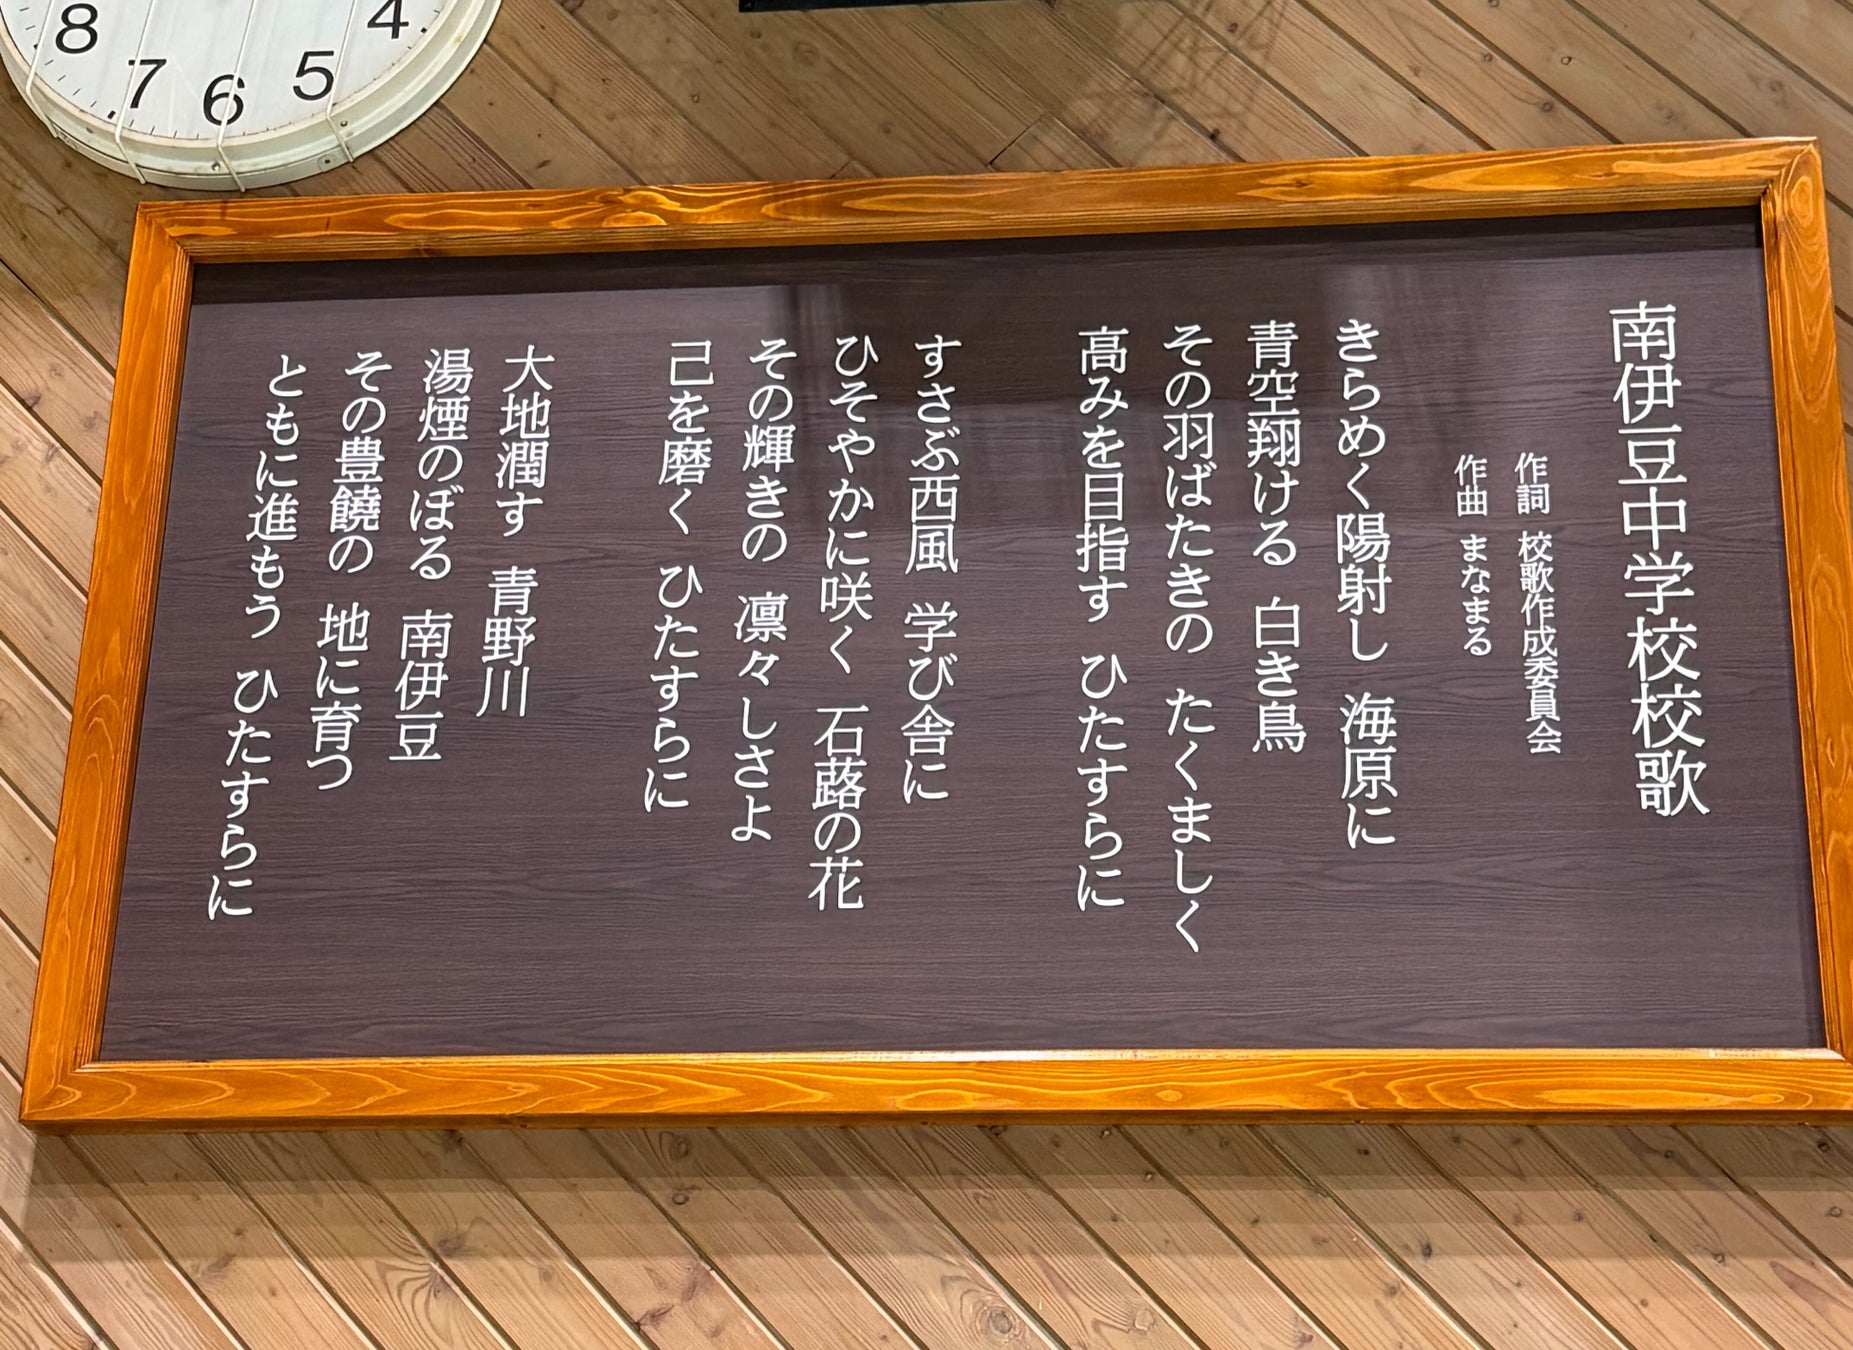 南伊豆中学校校歌
作詞 校歌作成委員会
作曲 まなまる
きらめく陽射し 海原に
青空翔ける 白き鳥
その羽ばたきの たくましく
高みを目指す ひたすらに
すさぶ西風 学び舎に
ひそやかに咲く 石蕗の花
その輝きの 凛々しさよ
己を磨く ひたすらに
大地潤す 青野川
湯煙のぼる 南伊豆
その豊饒の 地に育つ
ともに進もう ひたすらに
8
7
6
5
4